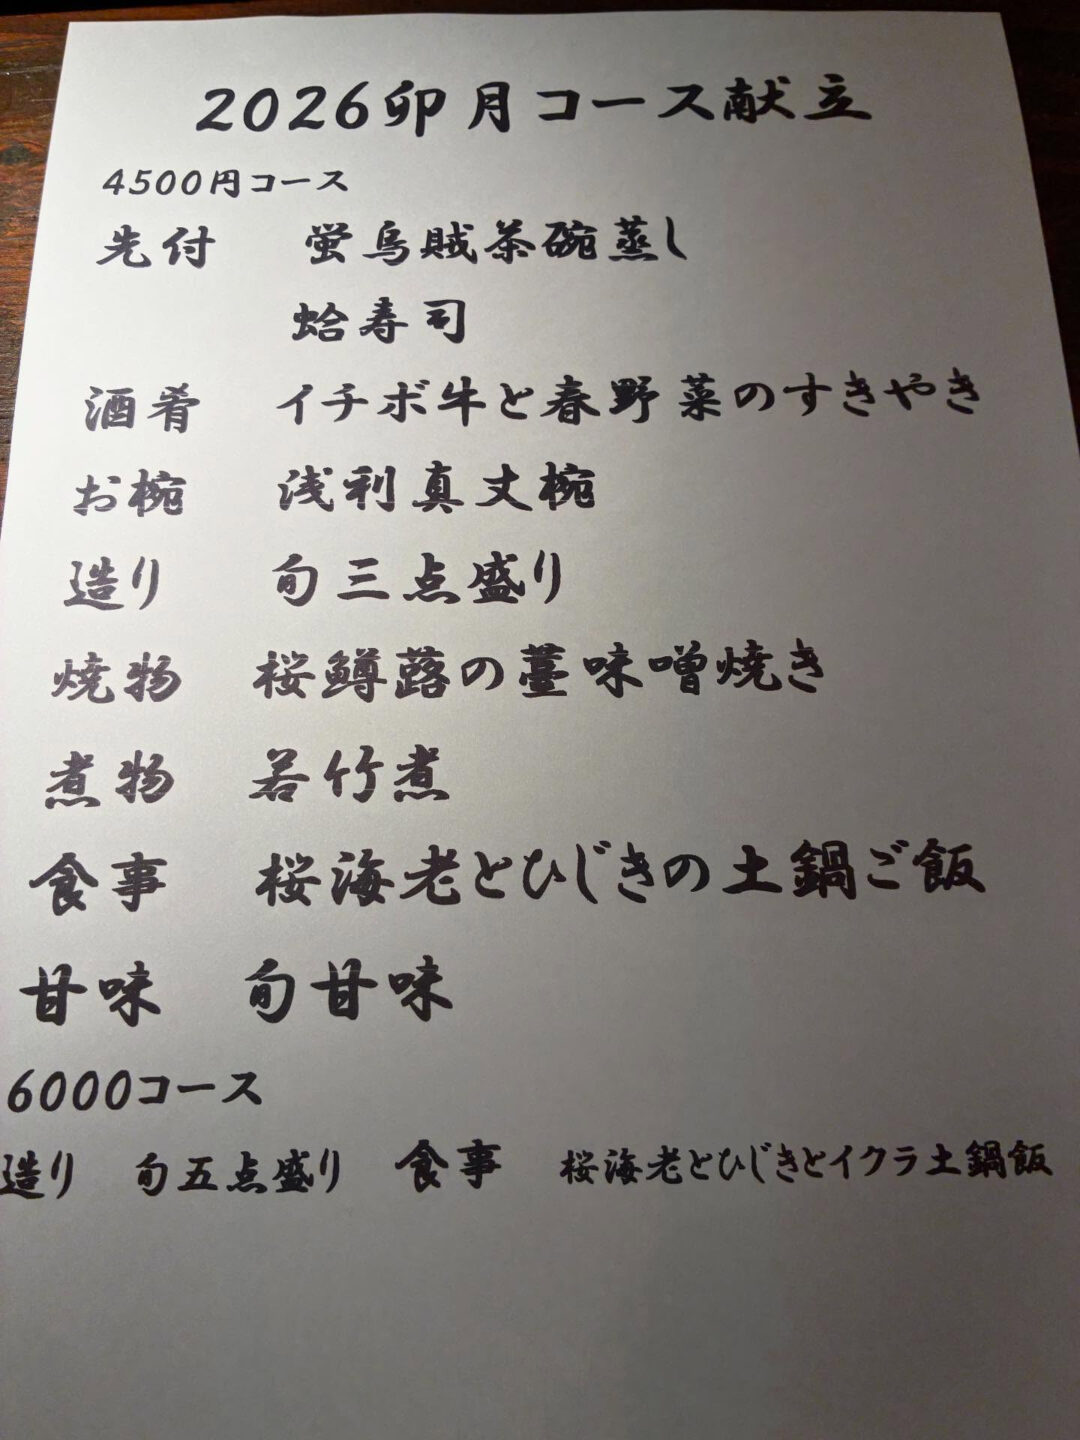 2026卯月コース献立
4500円コース
先付 蛍烏賊茶碗蒸し
蛤寿司
酒肴 イチボ牛と春野菜のすきやき
お椀 浅利真丈椀
造り 旬三点盛り
焼物 桜鱒蕗の薹味噌焼き
煮物 若竹煮
食事 桜海老とひじきの土鍋ご飯
甘味 旬甘味
6000コース
造り 旬五点盛り 食事 桜海老とひじきとイクラ土鍋飯